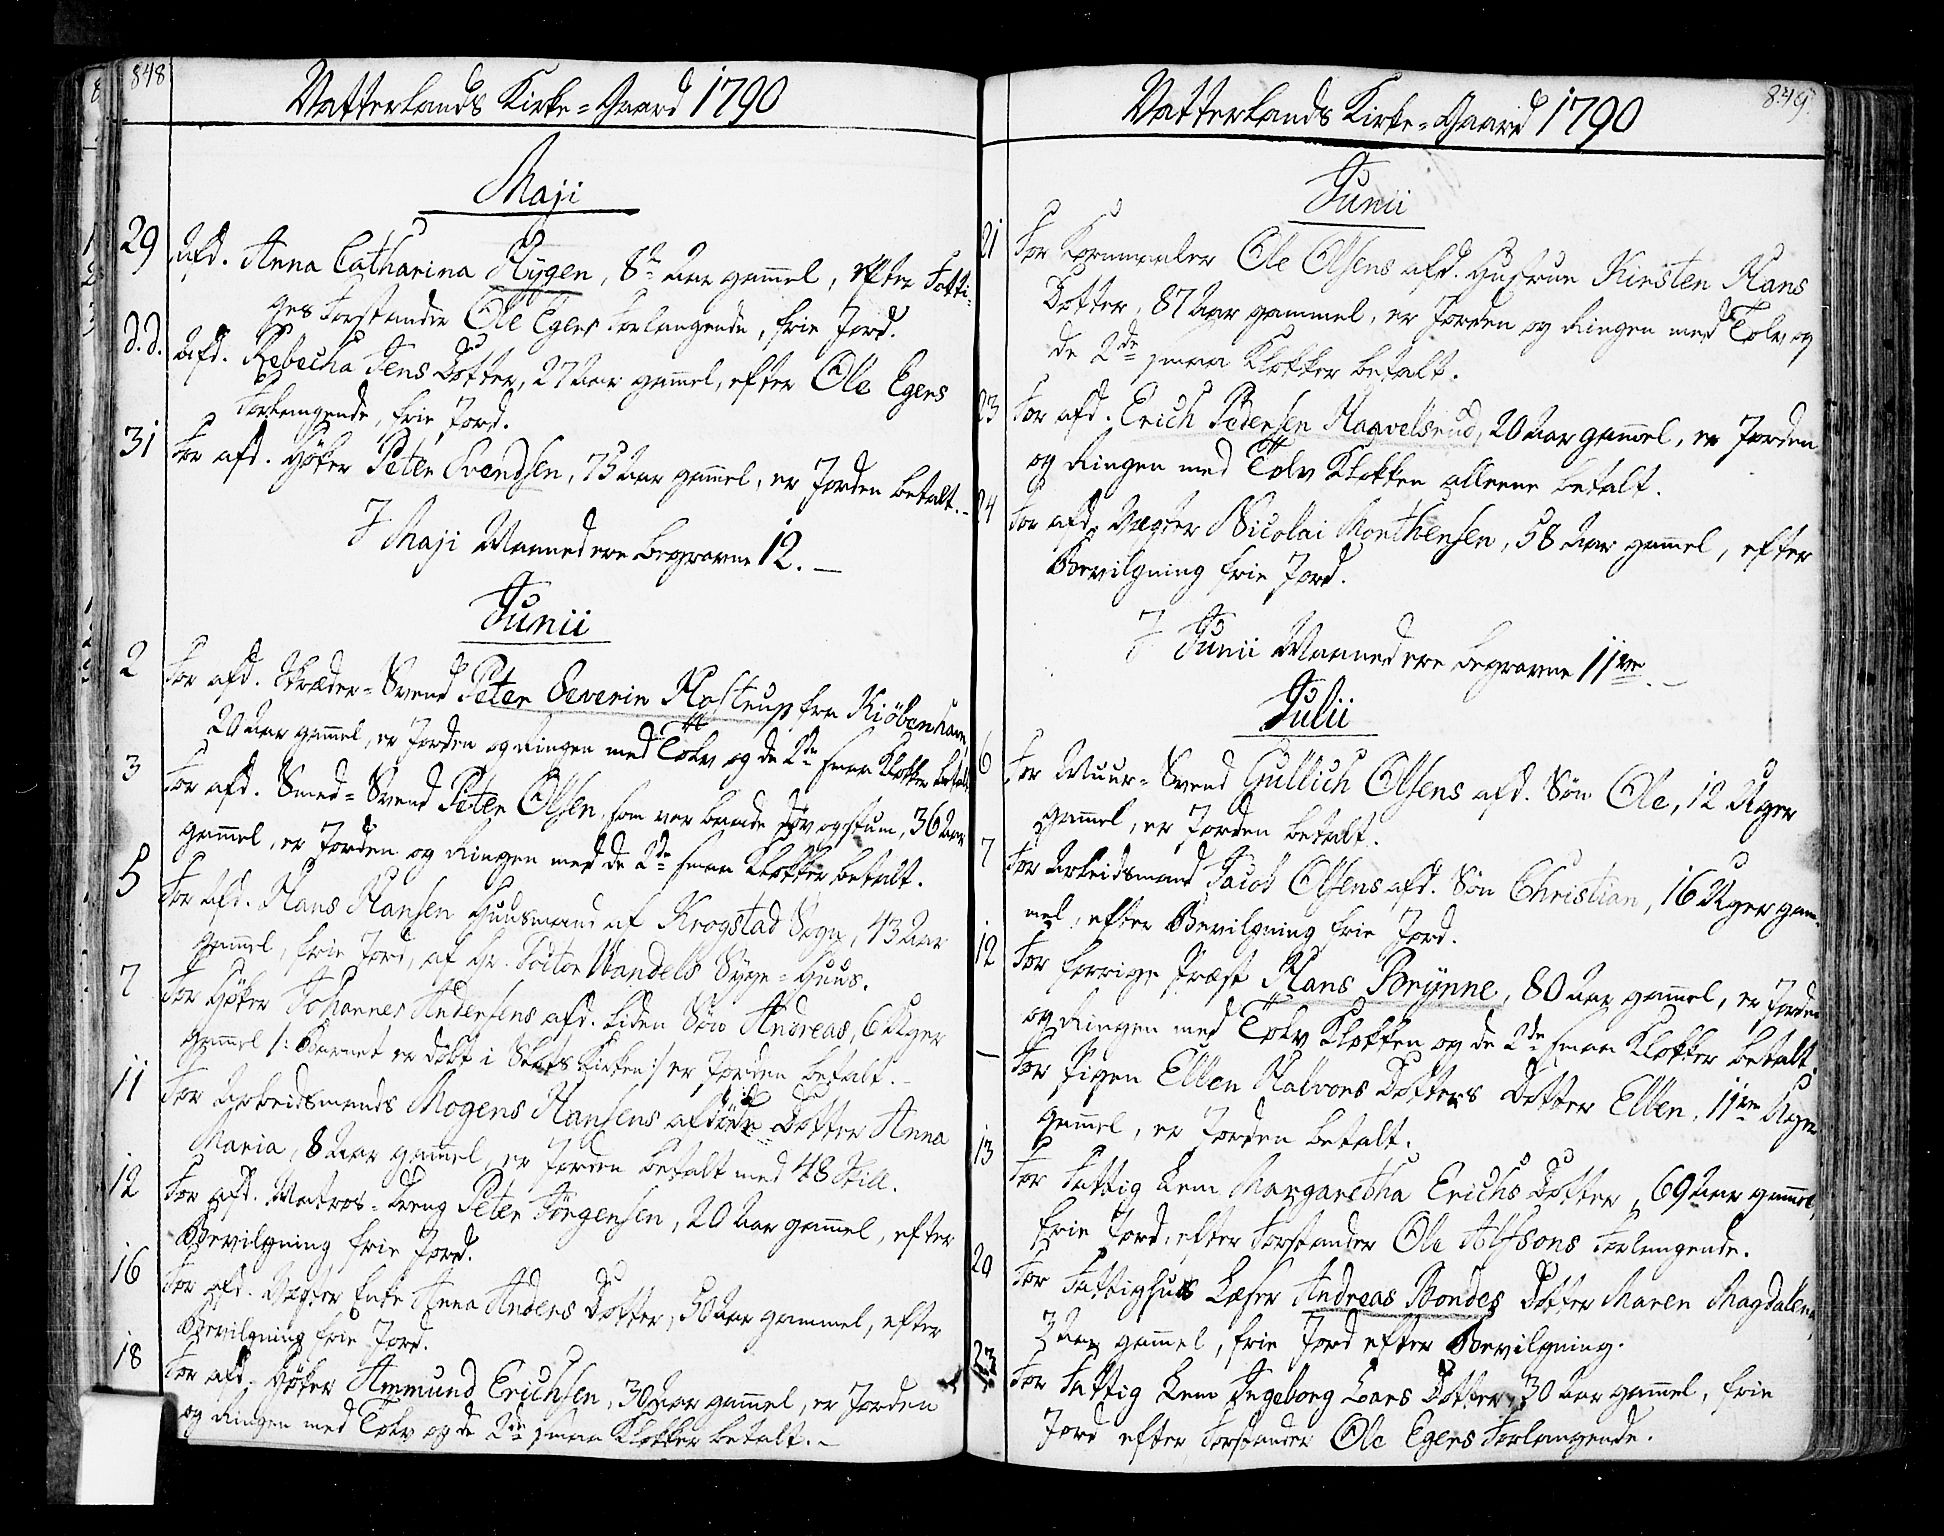 848
Vatterlands Kirke-Gaard 1790
Maji
29 Afd. Anna Catharina Hÿgen, 8te Aar gam̄el, efter Fatti-
ges Forstander Ole Egers Forlangende, frie Jord.
d.d. Afd. Rebecha Jens Dotter, 27 Aar gam̄el, efter Ole Egers
Forlangende, frie Jord.
31 For afd. Höker Peter Svendsen, 73 Aar gam̄el, er Jorden betalt.
I Maji Maaned ere begravne 12.
Junii
2 For afd. Skræder-Svend Peter Severin Rostrup fra Kiöbenhavn,
20 Aar gam̄el, er Jorden og Ringen med Tolv og de 2de smaa Klokker betalt.
3 For afd. Smed-Svend Peter Olsen, som var baade döv og stum, 36 Aar
gam̄el, er Jorden og Ringen med de 2de smaa Klokker betalt.
5 For afd. Hans Hansen Huusmand af Krogstad Sogn, 43 Aar
gam̄el, frie Jord, af Hr. Doctor Wandels Syge-Huus.
7 For Höker Johannes Andersens afd. liden Sön Andreas, 6 Uger
gam̄el /: Barnet er döbt i Slots Kirken :/ er Jorden betalt.
11 For Arbeidsmands Mogens Hansens afdöde Dotter Anna
Maria, 8 Aar gam̄el, er Jorden betalt med 48 Skill.
12 For afd. Matros-Dreng Peter Jörgensen, 20 Aar gam̄el, efter
Bevilgning frie Jord.
16 For afd. Vægter Enke Anna Anders Dotter, 50 Aar gammel, efter
Bevilgning frie Jord.
18 For afd. Höker Ammund Erichsen, 30 Aar gam̄el, er Jorden
og Ringen med Tolv og de 2de smaa Klokker betalt.
849.
Vatterlands Kirke-Gaard 1790
Junii
21 For Kornmaaler Ole Olsens afd. Hustrue Kirsten Hans
Dotter, 87 Aar gammel, er Jorden og Ringen med Tolv og
de 2de smaa Klokker betalt.
23 For afd. Erich Pedersen Haavelsrud, 20 Aar gam̄el, er Jorden
og Ringen med Tolv Klokken alleene betalt.
24 For afd. Vægter Nicolai Monthensen, 58 Aar gam̄el, efter
Bevilgning frie Jord.
I Junii Maaned ere begravne 11ve.
Julii
6 For Muur-Svend Gullich Olsens afd. Sön Ole, 12 Uger
gam̄el, er Jorden betalt.
7 For Arbeidsmand Jacob Olsens afd. Sön Christian, 16 Uger gam-
mel, efter Bevilgning frie Jord.
12 For forrige Præst Hans Brÿnne, 80 Aar gam̄el, er Jorden
og Ringen med Tolv Klokken og de 2de smaa Klokker betalt.
— For Pigen Ellen Halvors Dotters Dotter Ellen, 11ve Uger
gam̄el, er Jorden betalt.
13 For Fattig Lem Margaretha Erichs Dotter, 69 Aar gam̄el,
frie Jord, efter Forstander Ole Alfsons Forlangende.
20 For Fattighuus Læser Andreas Bondes Dotter Maren Magdalena,
3 Aar gam̄el, frie Jord efter Bevilgning.
23 For Fattig Lem Ingeborg Lars Dotter, 30 Aar gam̄el, frie
Jord efter Forstander Ole Egers Forlangende.